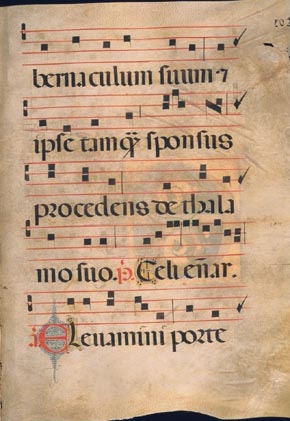 bernaculum suum ⁊
ipse tamq̃ sponsus
procedens de thala
mo suo. p̄. Celi enar.
a. Eleuamini porte